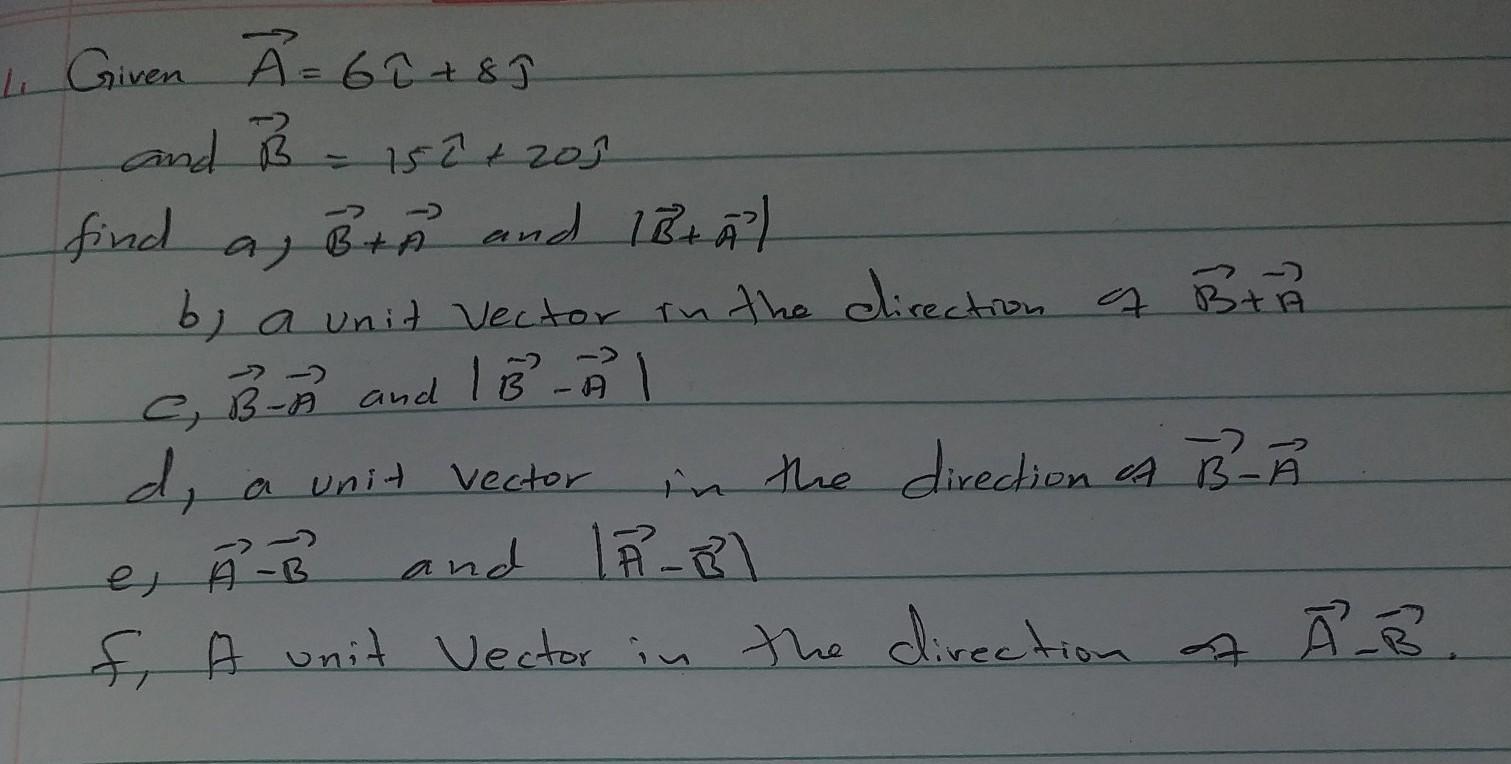 1. Given A⃗ = 6î + 8ĵ
and B⃗ = 15î + 20ĵ
find a, B⃗+A⃗ and |B⃗+A⃗|
b, a unit vector in the direction of B⃗+A⃗
c, B⃗-A⃗ and |B⃗-A⃗|
d, a unit vector in the direction of B⃗-A⃗
e, A⃗-B⃗ and |A⃗-B⃗|
f, A unit Vector in the direction of A⃗-B⃗.